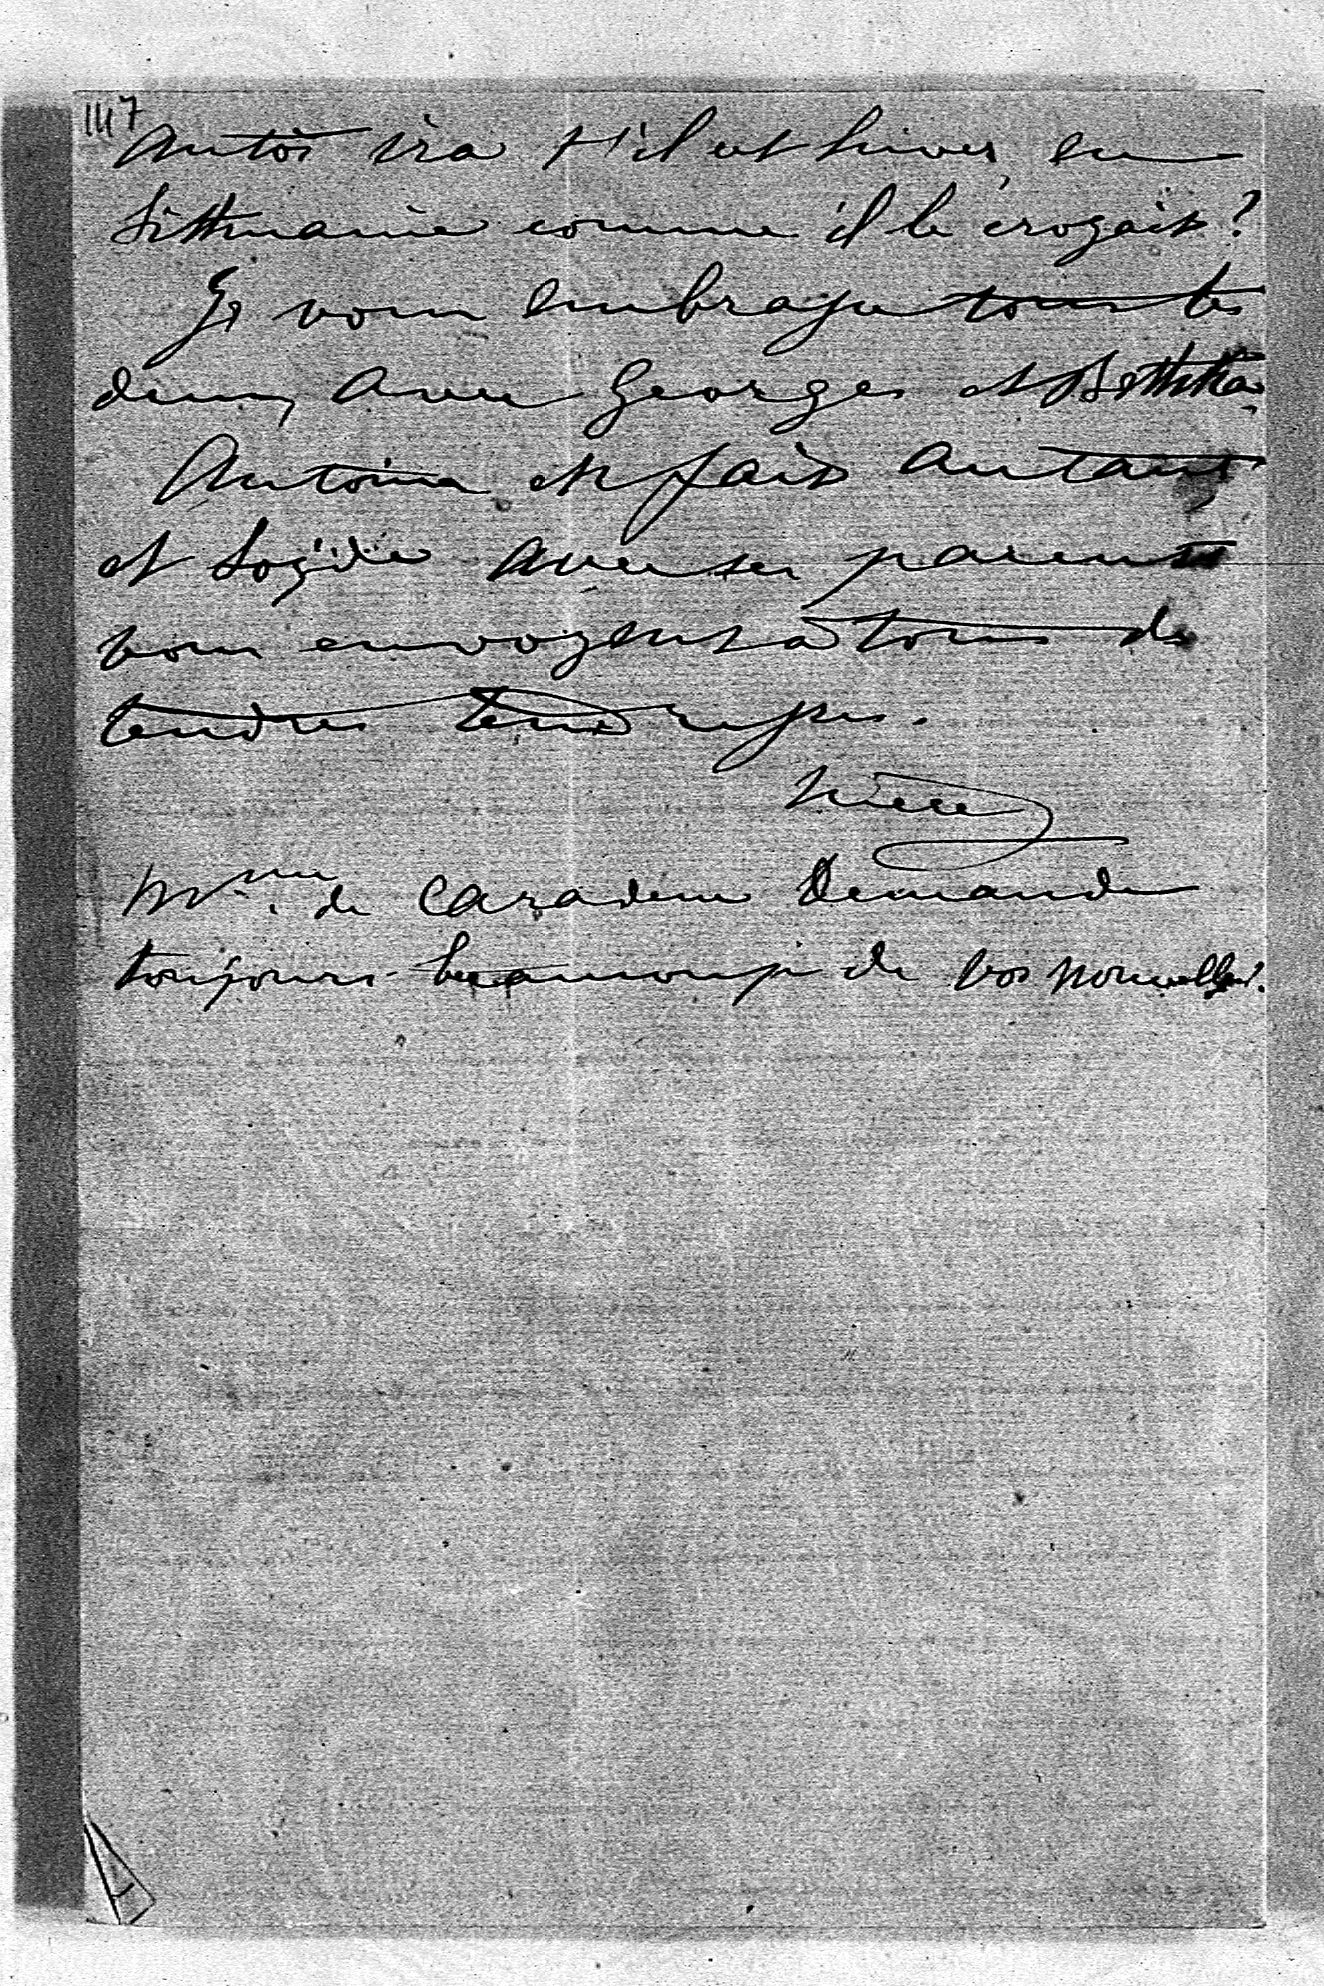 1147
Antoś ira t'il cet hiver, en
Litthuanie comme il le croyait?
Je vous embrasse tous les
deux, avec Georges et Bettka.
Antoine en fait autant
et Sophie avec ses parents
vous envoyent à tous de
tendres tendresses.
Mme. de Caradeuc demande
toujours beaucoup de vos nouvelles.